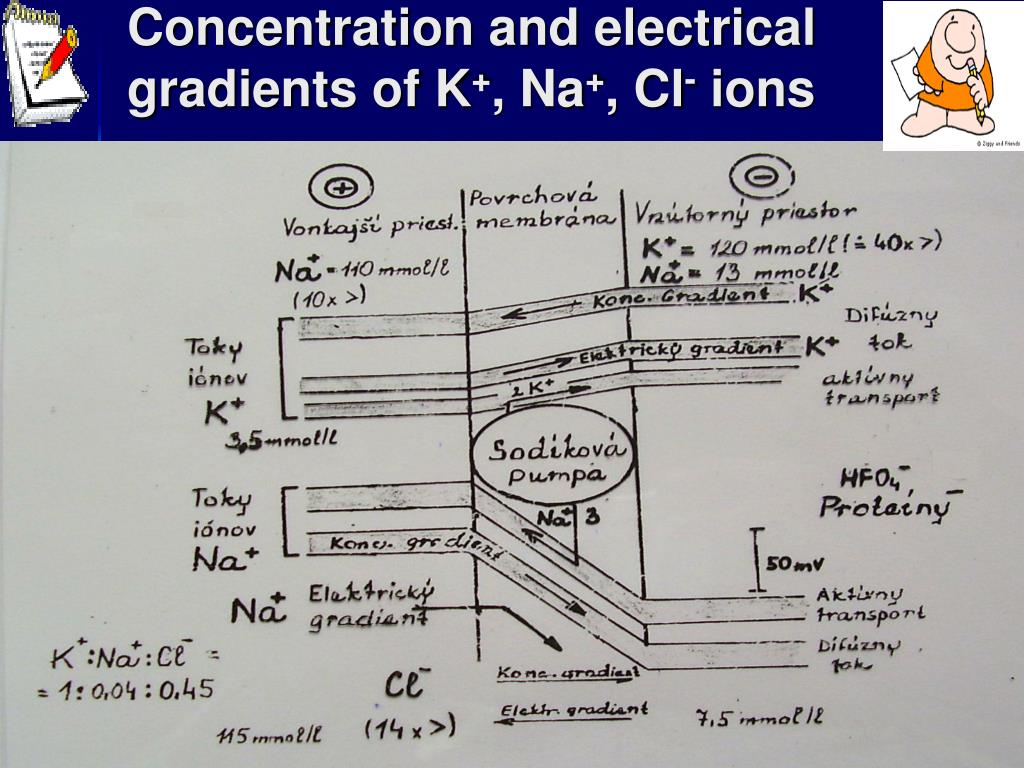 Concentration and electrical
gradients of K⁺, Na⁺, Cl⁻ ions
© Ziggy and Friends
+
−
Vonkajší priest.
Povrchová
membrána
Vnútorný priestor
K⁺ = 120 mmol/l (≐ 40x >)
Na⁺ = 110 mmol/l
(10x >)
Na⁺ = 13 mmol/l
Konc. Gradient K⁺
Difúzny
tok
Toky
iónov
K⁺
3,5 mmol/l
Elektrický gradient K⁺
2 K⁺
aktívny
transport
Sodíková
pumpa
Na⁺ 3
HFO₄⁻
Proteíny⁻
Toky
iónov
Na⁺
Konc. gradient
50 mV
Na⁺ Elektrický
gradient
Aktívny
transport
Difúzny
tok
K⁺:Na⁺:Cl⁻ =
= 1:0,04:0,45
Cl⁻
(14x >)
115 mmol/l
Konc. gradient
Elektr. gradient
7,5 mmol/l